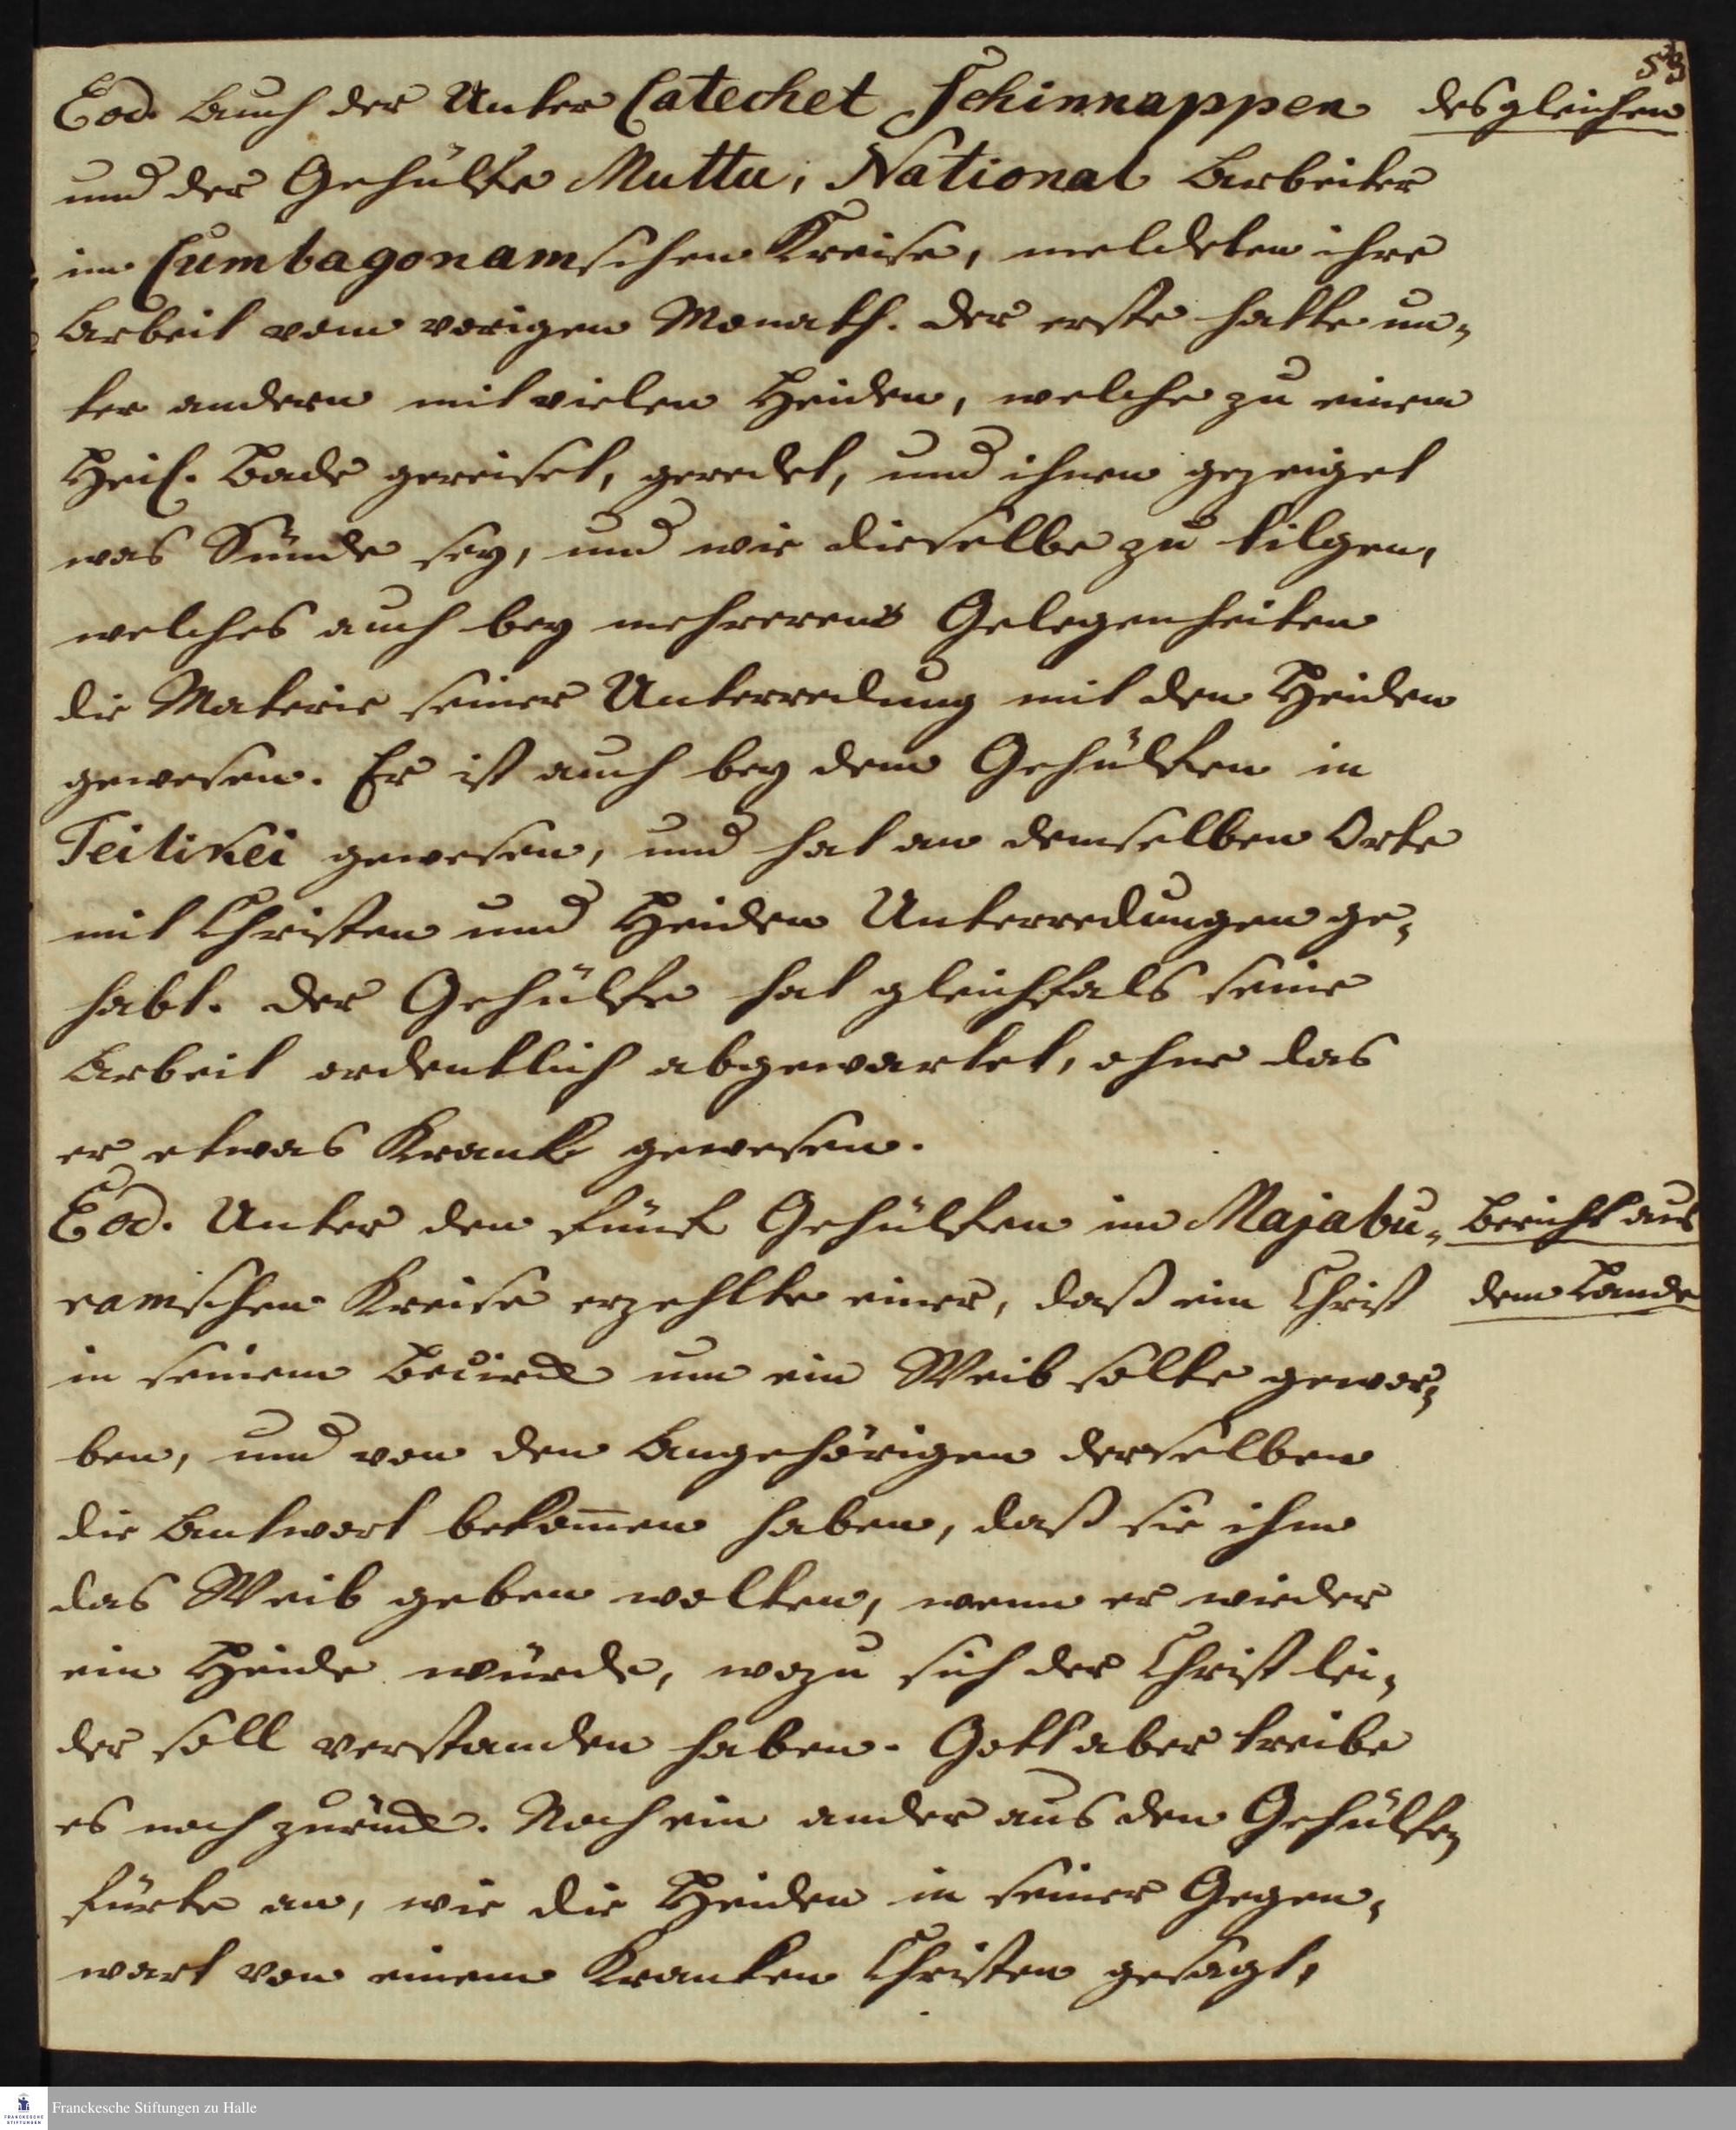 53
Eod. Auch der Unter Catechet Schinnappen
desgleichen
und der Gehülfe Muttu, National Arbeiter
im Cumbagonamschen Kreise, meldeten ihre
Arbeit vom vorigen Monath. der erste hatte un-
ter andern mit vielen Heiden, welche zu einem
Heil. Bade gereiset, geredet, und ihnen gezeiget
was Sünde sey, und wie dieselbe zu tilgen,
welches auch bey mehreren Gelegenheiten
die Materie seiner Unterredung mit den Heiden
gewesen. Er ist auch bey dem Gehülfen in
Teitikei gewesen, und hat an demselben Orte
mit Christen und Heiden Unterredungen ge-
habt. der Gehülfe hat gleichfals seine
Arbeit ordentlich abgewartet, ohne das
er etwas Kranck gewesen.
Eod. Unter den fünf Gehülfen im Majabu-
Bericht aus
ramschen Kreise erzehlte einer, daß ein Christ
dem Lande
in seinem Becirck um ein Weib solte gewor-
ben, und von den Angehörigen derselben
die Antwort bekom̄en haben, daß sie ihm
das Weib geben wolten, wenn er wieder
ein Heide würde, wozu sich der Christ lei-
der soll verstanden haben. Gott aber treibe
es noch zurück. Noch ein ander aus den Gehülfen
fürte an, wie die Heiden in seiner Gegen-
wart von einem Krancken Christen gesagt,
Franckesche Stiftungen zu Halle